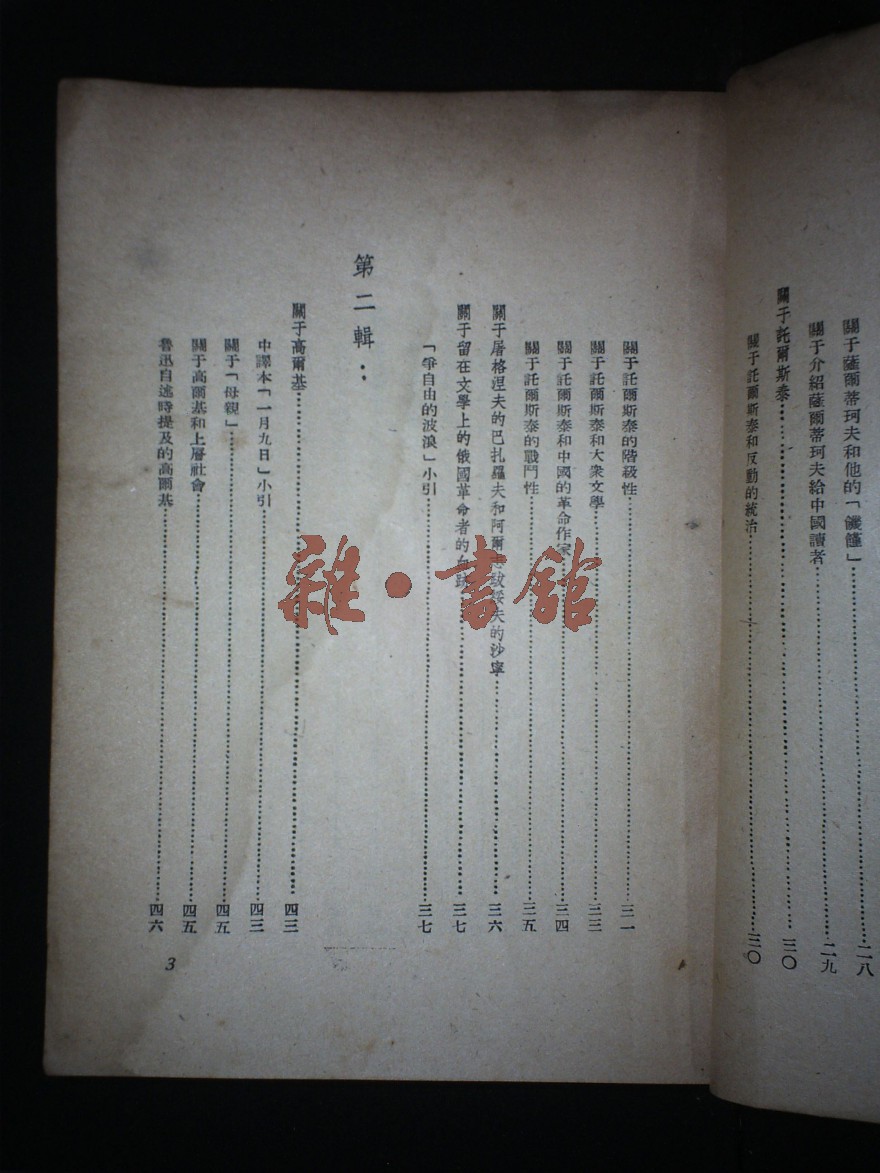 關于薩爾蒂珂夫和他的「饑饉」……二八
關于介紹薩爾蒂珂夫給中國讀者……二九
關于託爾斯泰……三〇
關于託爾斯泰和反動的統治……三〇
關于託爾斯泰的階級性……三一
關于託爾斯泰和大衆文學……三三
關于託爾斯泰和中國的革命作家……三四
關于託爾斯泰的戰鬥性……三五
關于屠格涅夫的巴扎羅夫和阿爾志跋綏夫的沙寧……三六
關于留在文學上的俄國革命者的血跡……三七
「爭自由的波浪」小引……三七
第二輯：
關于高爾基……四三
中譯本「一月九日」小引……四三
關于「母親」……四五
關于高爾基和上層社會……四五
魯迅自述時提及的高爾基……四六
3
雜·書館